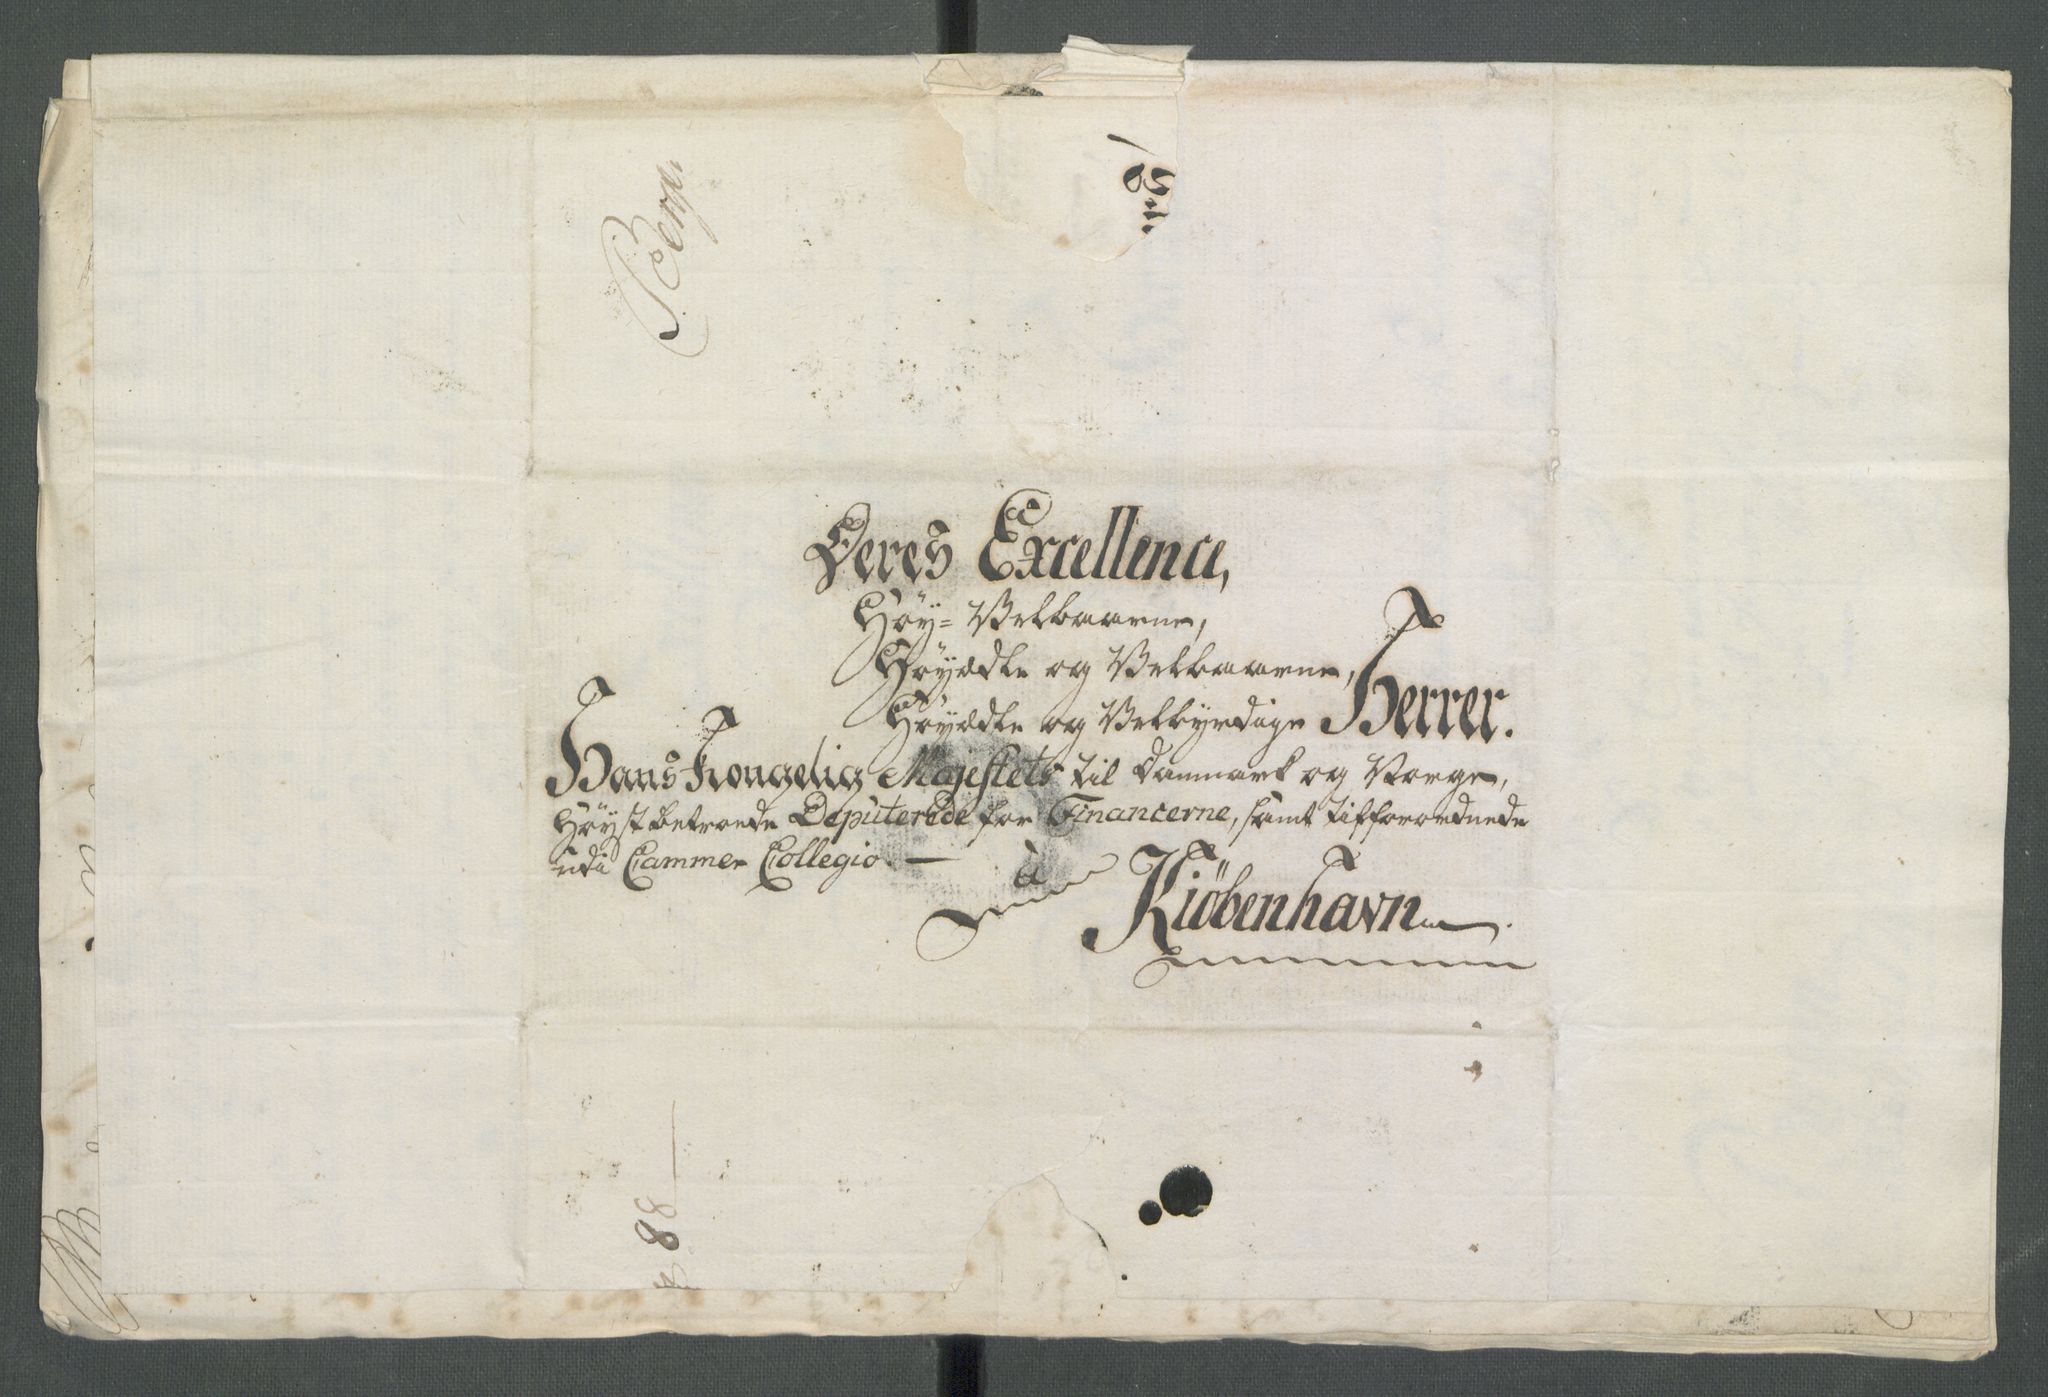 Deres Excellence,
Høy=Velbaarne,
Høyædle og Velbaarne,
Høyædle og Velbyrdige Herrer.
Hans Kongelig Majestets til Danmark og Norge,
Høystbetroede Deputerede for Financerne, samt tilforordnede
udi Cammer Collegio. —
à
Kiöbenhavn
88 —